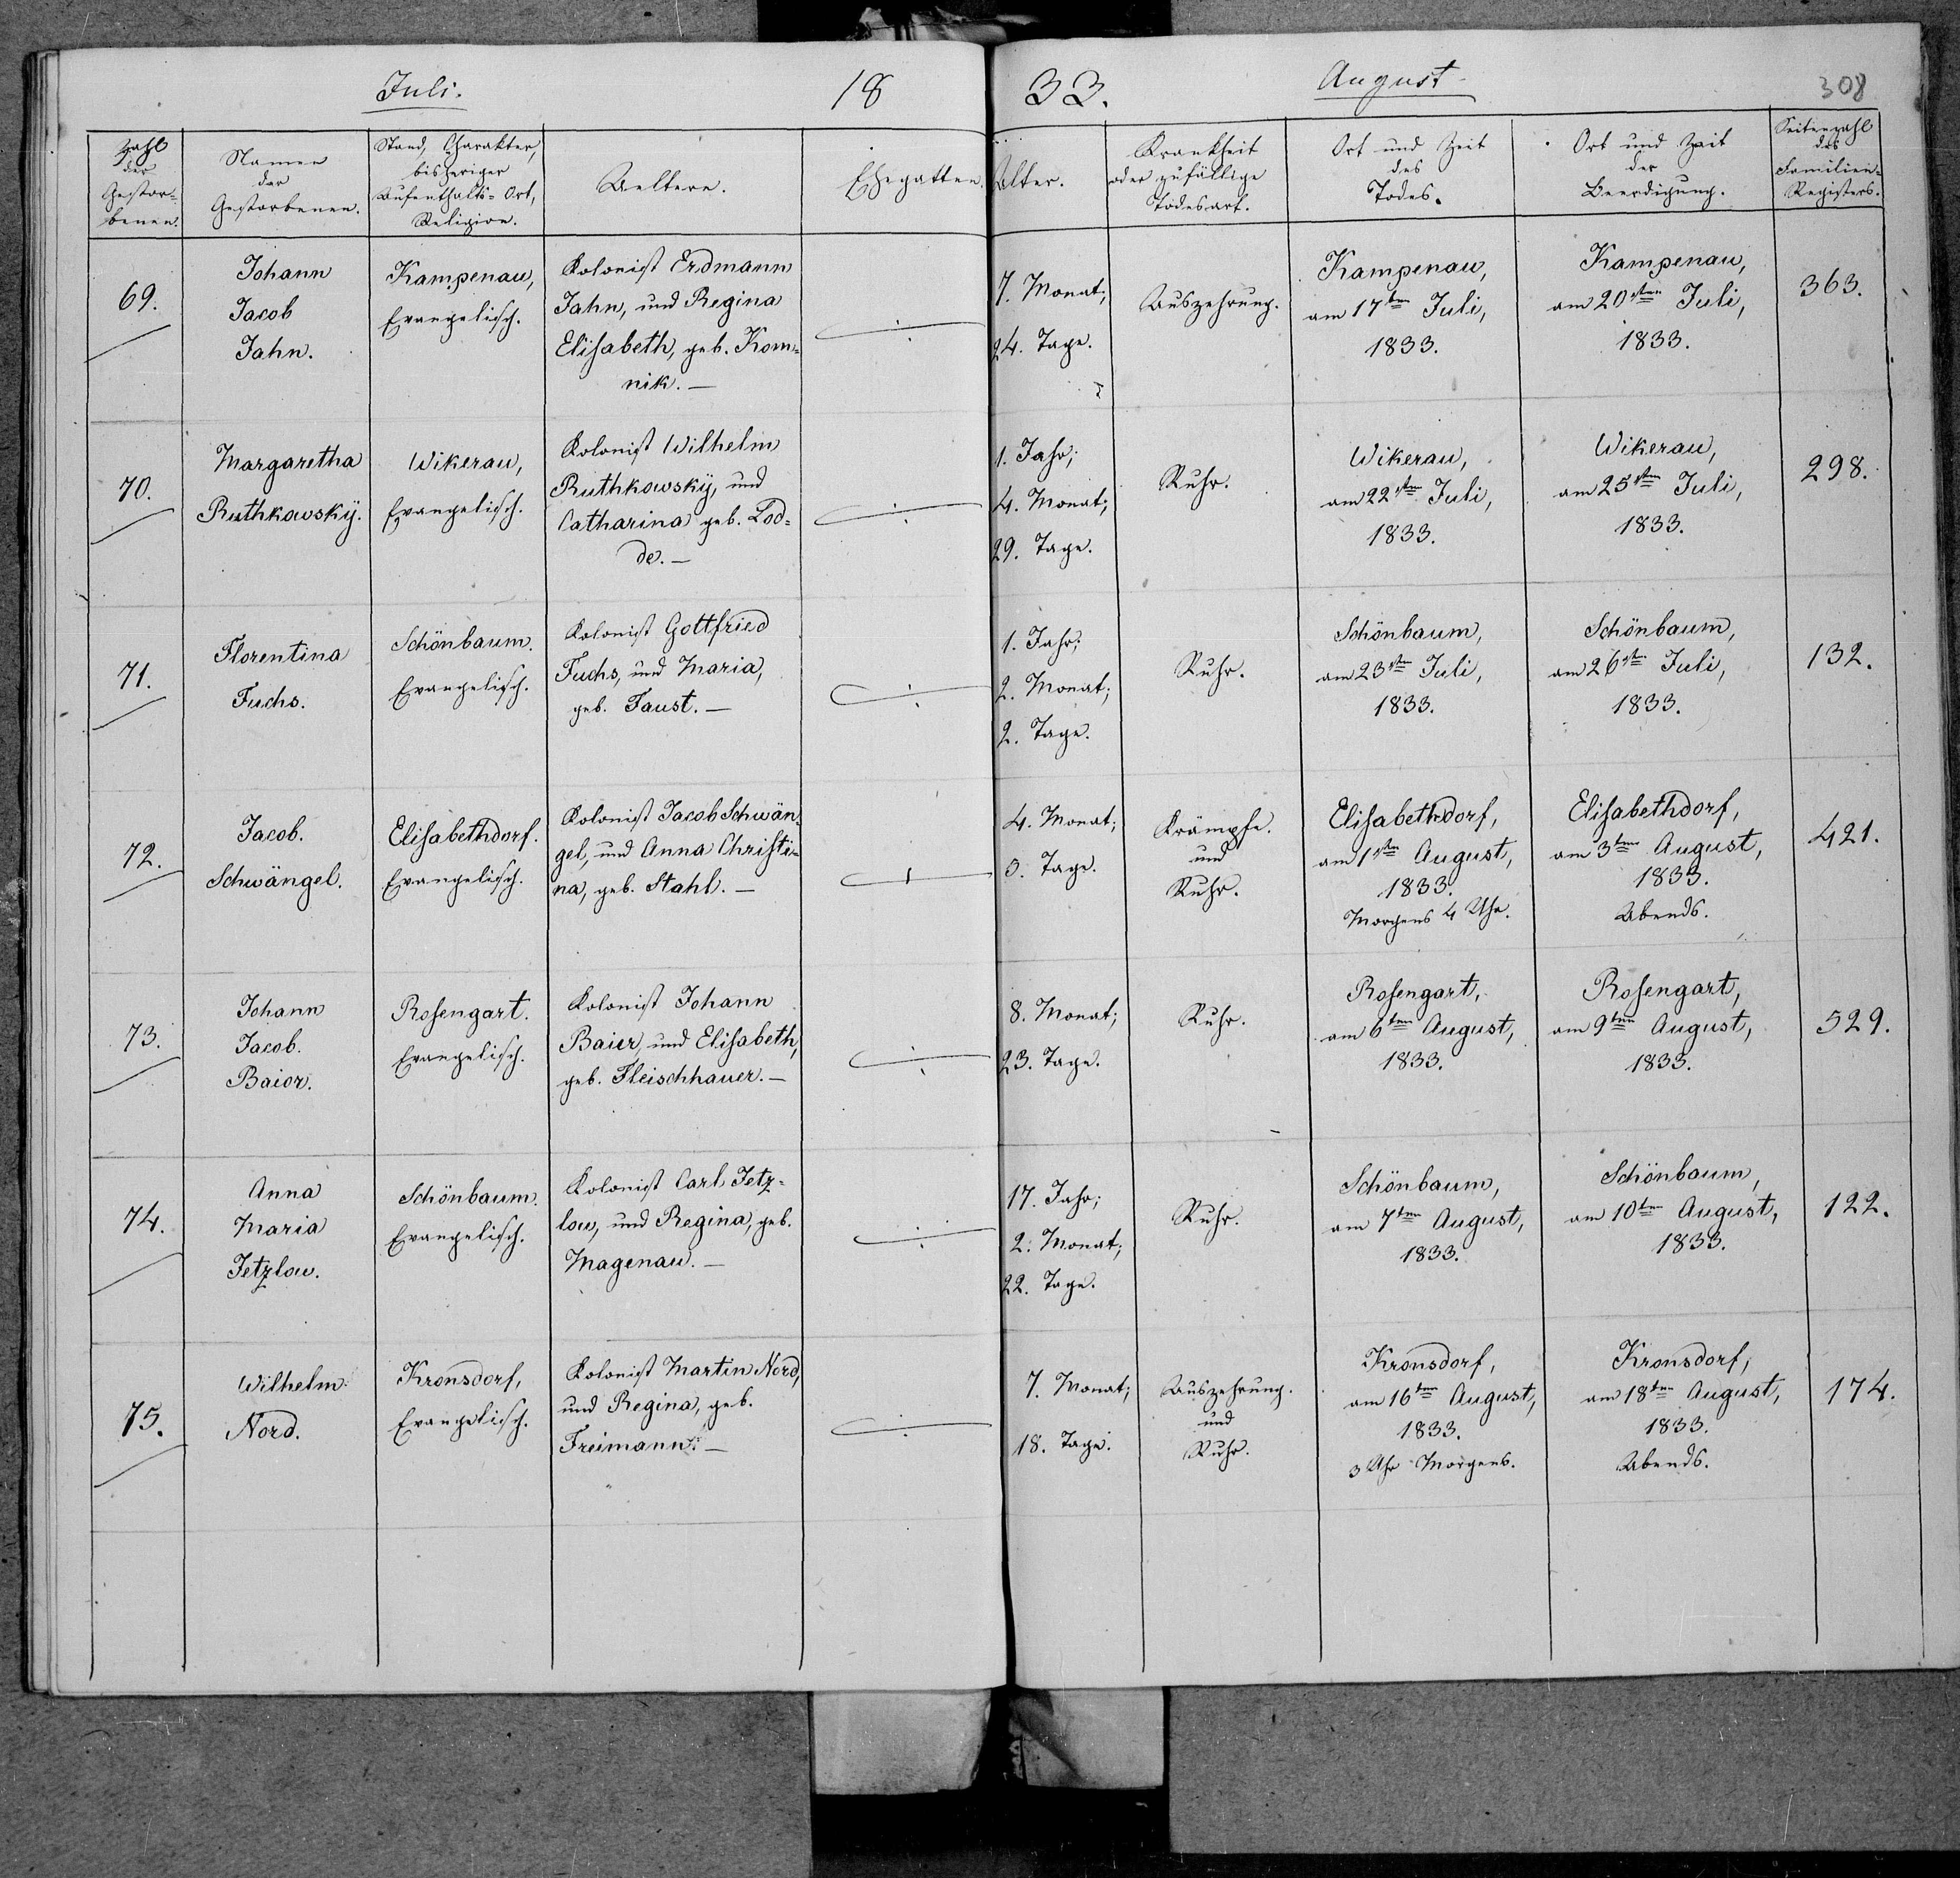 Juli.
18
33.
August
308
Zahl
der
Gestor-
benen.
Namen
der
Gestorbenen.
Stand, Charakter,
bisheriger
Aufenthalts-Ort,
Religion.
Aeltern.
Ehegatten.
Alter.
Krankheit
oder zufällige
Todesart.
Ort und Zeit
des
Todes.
Ort und Zeit
der
Beerdigung.
Seitenzahl
des
Familien-
Registers.
69.
Johann
Jacob
Jahn.
Kampenau,
Evangelisch.
Kolonist Erdmann
Jahn, und Regina
Elisabeth, geb. Kom-
nik. —
7. Monat;
24. Tage.
Auszehrung.
Kampenau,
am 17ten Juli,
1833.
Kampenau,
am 20sten Juli,
1833.
363.
70.
Margaretha
Ruthkowskÿ.
Wikerau,
Evangelisch.
Kolonist Wilhelm
Ruthkowskÿ, und
Catharina geb. Lod-
de. —
1. Jahr;
4. Monat;
29. Tage.
Ruhr.
Wikerau,
am 22sten Juli,
1833.
Wikerau,
am 25sten Juli,
1833.
298.
71.
Florentina
Fuchs.
Schönbaum.
Evangelisch.
Kolonist Gottfried
Fuchs, und Maria,
geb. Faust. —
1. Jahr;
2. Monat;
2. Tage.
Ruhr.
Schönbaum,
am 23sten Juli,
1833.
Schönbaum,
am 26sten Juli,
1833.
132.
72.
Jacob.
Schwängel.
Elisabethdorf.
Evangelisch.
Kolonist Jacob Schwän-
gel, und Anna Christi-
na, geb. Stahl. —
4. Monat;
3. Tage.
Krämpfe.
und
Ruhr.
Elisabethdorf,
am 1sten August,
1833.
Morgens 4 Uhr.
Elisabethdorf,
am 3ten August,
1833.
Abends.
421.
73.
Johann
Jacob.
Baier.
Rosengart.
Evangelisch.
Kolonist Johann
Baier, und Elisabeth,
geb. Fleischhauer. —
8. Monat;
23. Tage.
Ruhr.
Rosengart,
am 6ten August,
1833.
Rosengart,
am 9ten August,
1833.
529.
74.
Anna
Maria
Jetzlow.
Schönbaum.
Evangelisch.
Kolonist Carl Jetz-
low, und Regina, geb.
Magenau. —
17. Jahr;
2. Monat;
22. Tage.
Ruhr.
Schönbaum,
am 7ten August,
1833.
Schönbaum,
am 10ten August,
1833.
122.
75.
Wilhelm
Nord.
Kronsdorf,
Evangelisch.
Kolonist Martin Nord,
und Regina, geb.
Freimann. —
7. Monat;
18. Tage.
Auszehrung.
und
Ruhr.
Kronsdorf,
am 16ten August,
1833.
3 Uhr Morgens.
Kronsdorf,
am 18ten August,
1833.
Abends.
174.